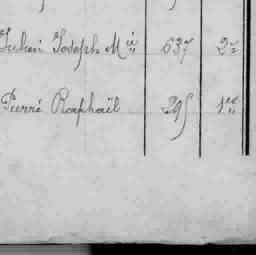 Julien Joseph Mie 637 2e
Pierre Raphaël 295 1er